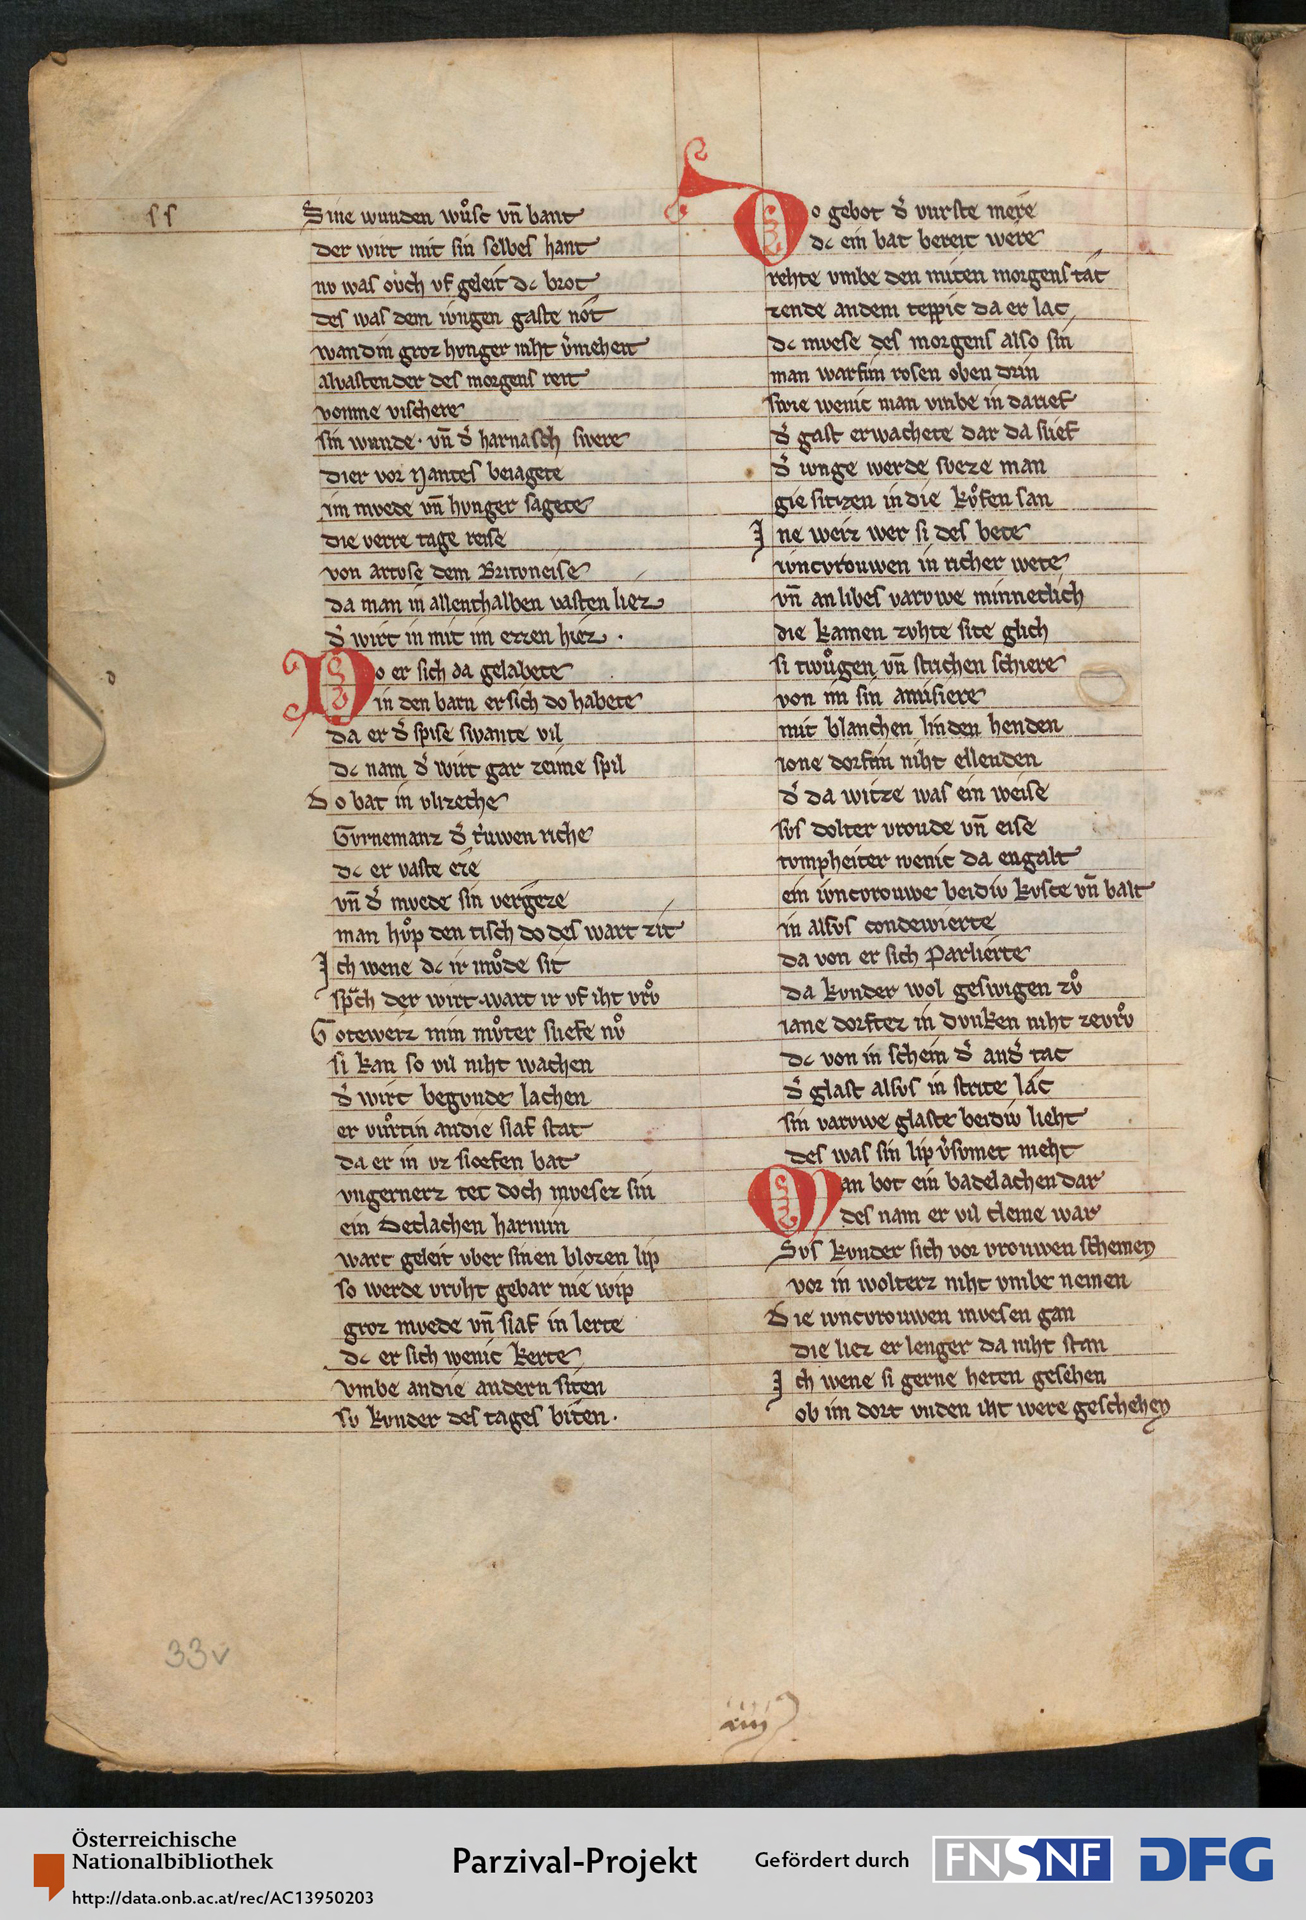 Sine wunden wuͦsc vn̄ bant
der wirt mit sin selbes hant
nv was oͮch vf geleit dc brot
des was dem ivngen gaste not
wandin groz hvnger niht v̾meheit
alvastender des morgens reit
vonme vischere
sin wunde · vn̄ d̾ harnasch swere
dier vor Nantes beiagete
im mvede vn̄ hvnger sagete
die verre tage reise
von artvse dem Brituneise
da man in allenthalben vasten liez
d̾ wirt in mit im ezzen hiez ·
Do er sich da gelabete
in den barn er sich do habete
da er d̾ spise swante vil
dc nam d̾ wirt gar zeime spil
Do bat in vlizeche
Gvrnemanz d̾ t̾uwen riche
dc er vaste eze
vn̄ d̾ mvede sin vergeze
man hvͦp den tisch do des wart zit
Ich wene dc ir mvͦde sit
sp̾ch der wirt · wart ir vf iht vrvͦ
Goteweiz min mvͦter sliefe nvͦ
si kan so vil niht wachen
d̾ wirt begvnde lachen
er vuͦrtin andie slaf stat
da er in vz sloefen bat
vngernerz tet doch mvesez sin
ein Declachen harmin
wart geleit vber sinen blozen lip
so werde vruht gebar nie wip
groz mvede vn̄ slaf in lerte
dc er sich wenic kerte
vmbe andie andern siten
sv kvnder des tages biten ·
Do gebot d̾ vurste mere
dc ein bat bereit were
rehte vmbe den miten morgens tac
zende andem teppic da er lac
dc mvese des morgens also sin
man warfim rosen oben drin
swie wenic man vmbe in darief
d̾ gast erwachete dar da slief
d̾ ivnge werde sveze man
gie sitzen in die kvͦfen san
Ine weiz wer si des bete
ivncvrouwen in richer wete
vn̄ an libes varvwe minneclich
die kamen zvhte site glich
si twuͦgen vn̄ strichen schiere
von im sin amisiere
mit blanchen linden henden
ione dorftim niht ellenden
d̾ da witze was ein weise
svs dolter vroude vn̄ eise
tvmpheiter wenic da engalt
ein ivncvrouwe beidiv kvste vn̄ balt
in alsvs condewierte
da von er sich Parlierte
da kvnder wol geswigen zvͦ
iane dorftez in dvnken niht zevrvͦ
dc von in schein d̾ and̾ tac
d̾ glast alsvs in strite lac
sin varvwe glaste beidiv lieht
des was sin lip v̾svmet nieht
Man bot ein badelachen dar
des nam er vil cleine war
Svs kvnder sich vor vrouwen schemen
vor in wolterz niht vmbe nemen
Die ivncvrouwen mvesen gan
die liez er lenger da niht stan
Ich wene si gerne heten gesehen
ob im dort vnden iht were geschehen
33v
Österreichische
Nationalbibliothek
http://data.onb.ac.at/rec/AC13950203
Parzival-Projekt
Gefördert durch
FNSNF
DFG